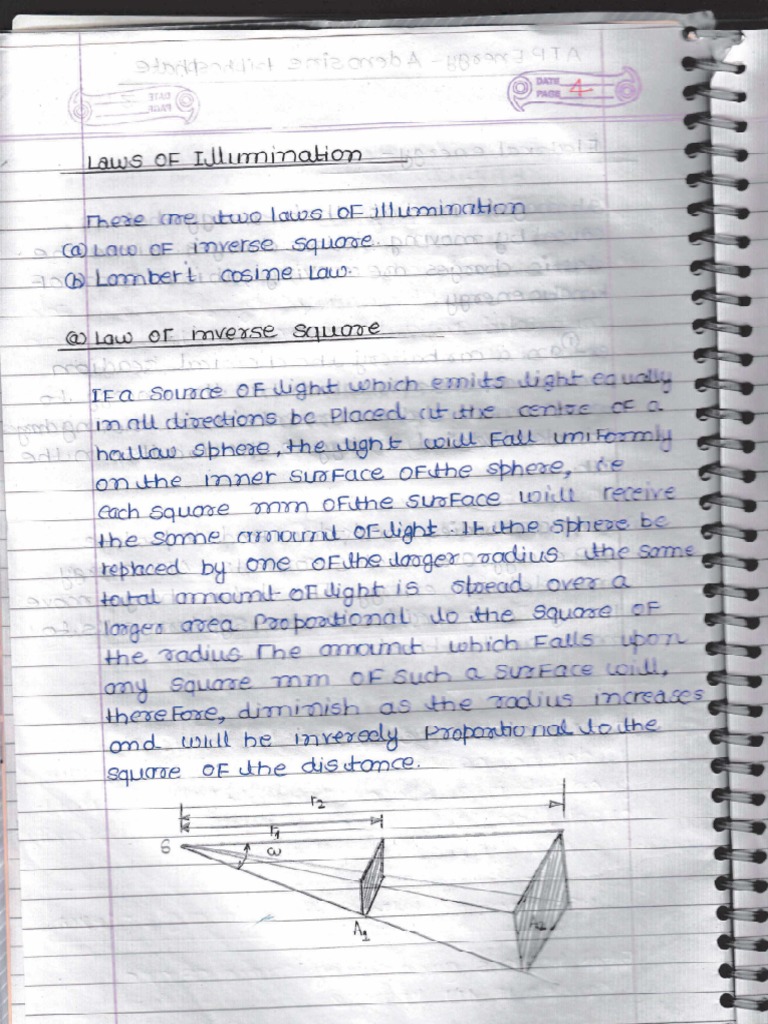 DATE
PAGE 4
Laws OF Illumination
There are two laws OF illumination
(a) Law OF inverse square
(b) Lambert cosine Law.
(a) Law OF inverse square
IF a source OF light which emits light equally
in all directions be Placed at the centre OF a
hallow sphere, the light will Fall uniformly
on the inner surFace OF the sphere, i.e
each square mm OF the surFace will receive
the same amount OF light. If the sphere be
replaced by one OF the larger radius the same
total amount OF light is spread over a
larger area Proportional to the square OF
the radius The amount which Falls upon
any square mm OF such a surFace will,
thereFore, diminish as the radius increases
and will be inversely Proportional to the
square OF the distance.
r2
r1
S
ω
A1
A2